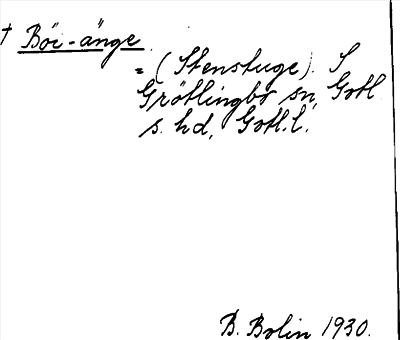 † Böi-änge.
= (Stenstuge). S
Grötlingbo sn, Gotl.
s. hd, Gotl. l.
B. Bolin 1930.